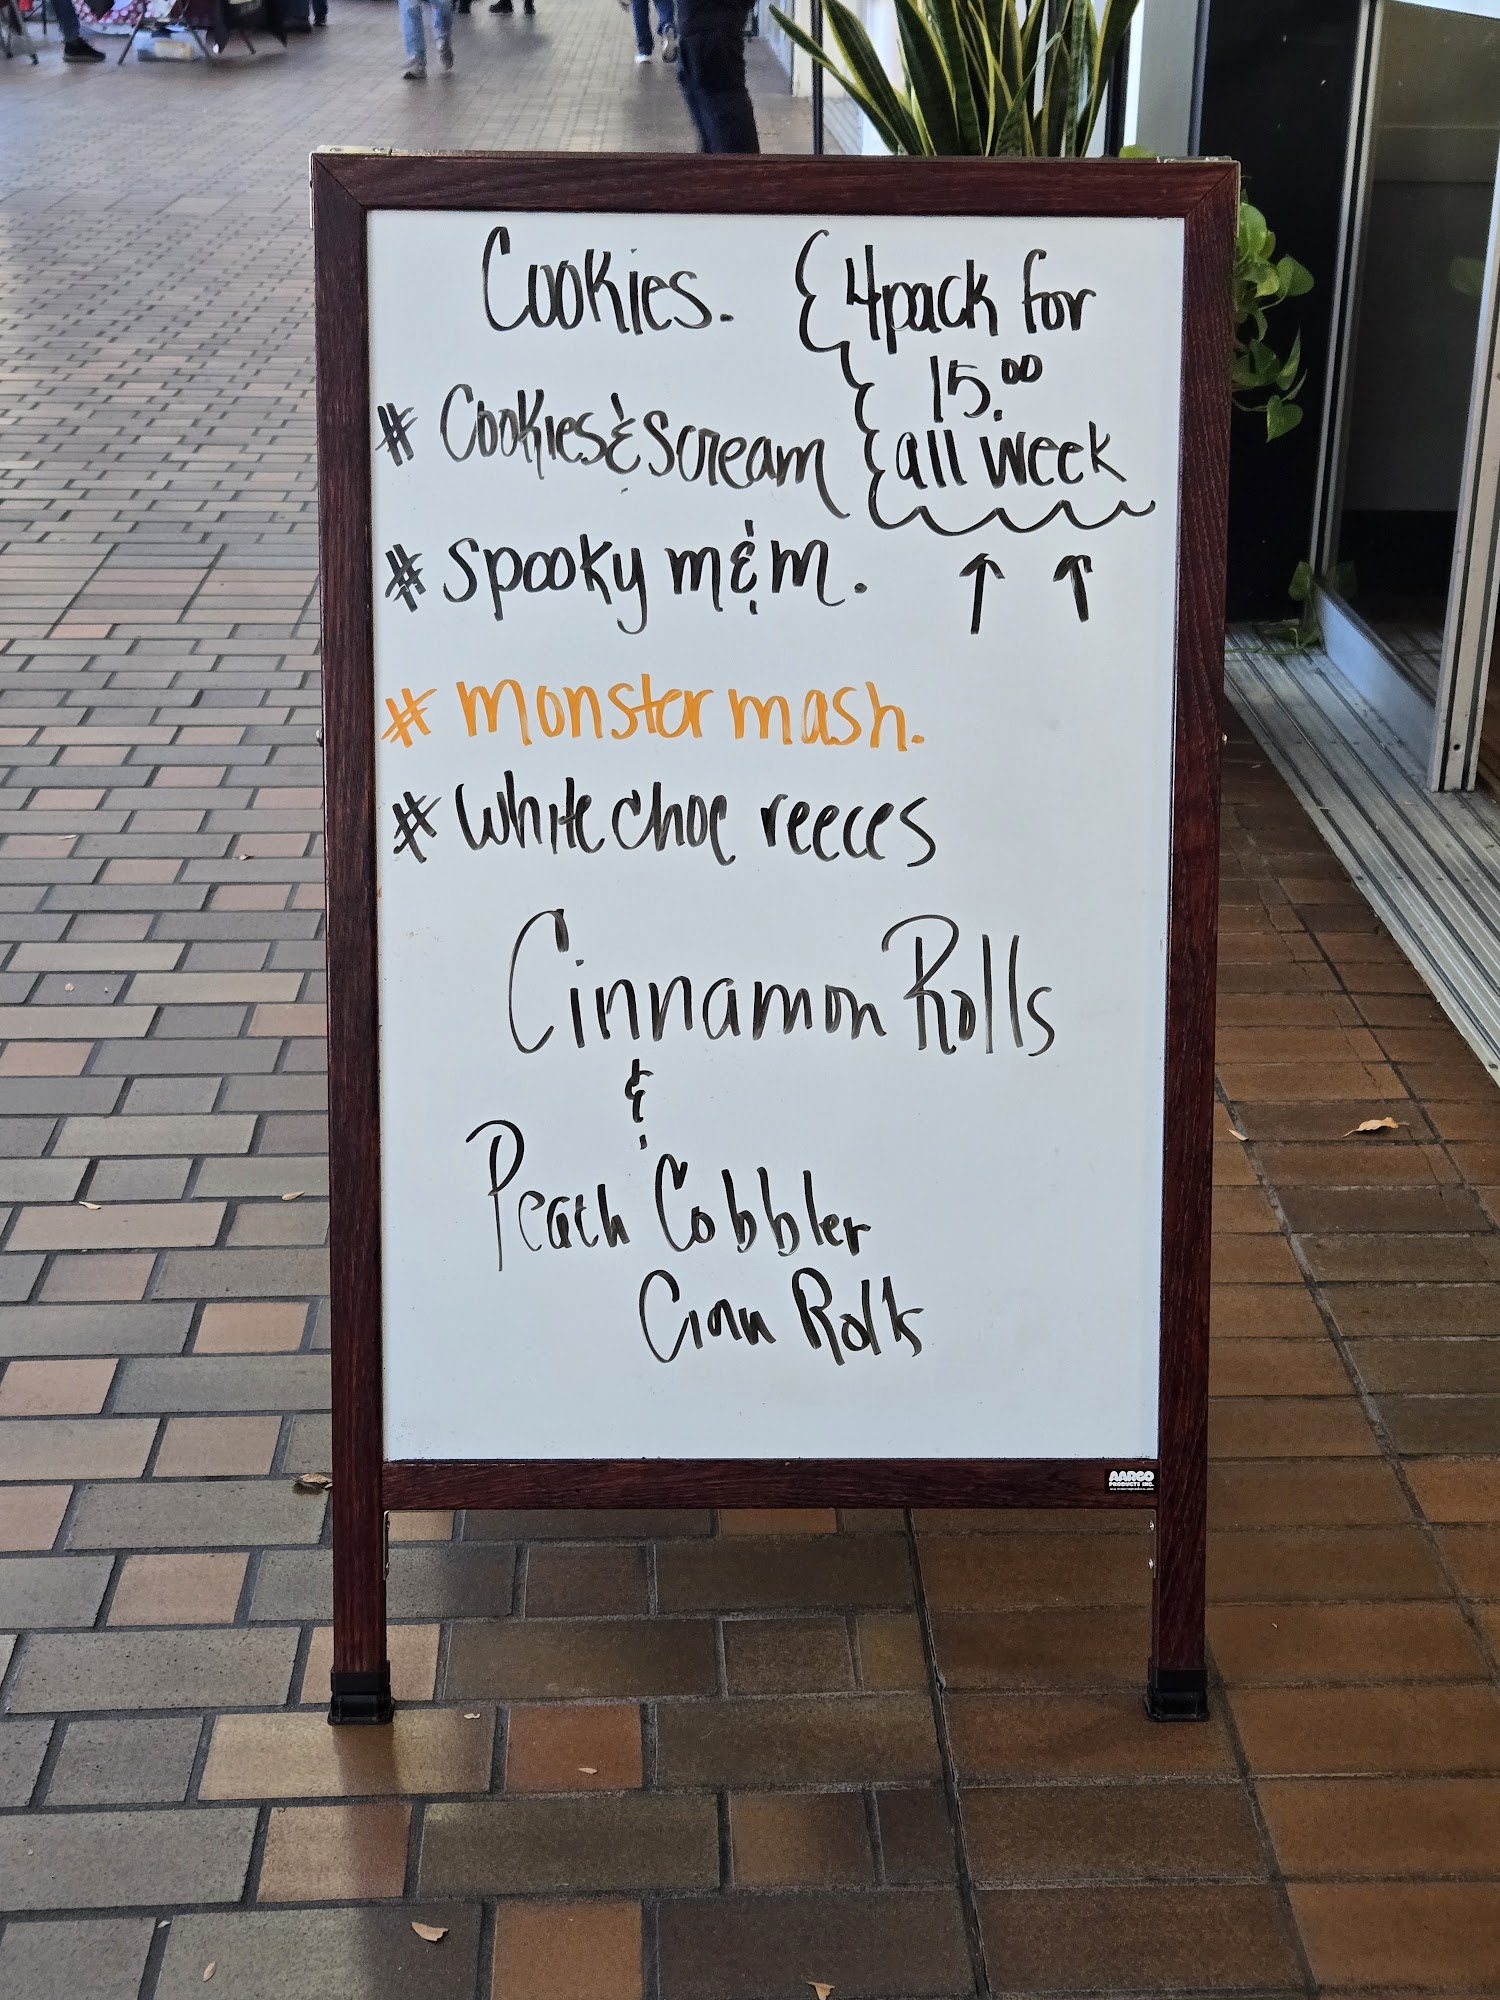 Cookies.
{4pack for
15.00
all week
# Cookies & Scream
# Spooky m&m.
# monster mash.
# white choc reeces
Cinnamon Rolls
&
Peach Cobbler
Cinn Rolls
AARCO
PRODUCTS INC.